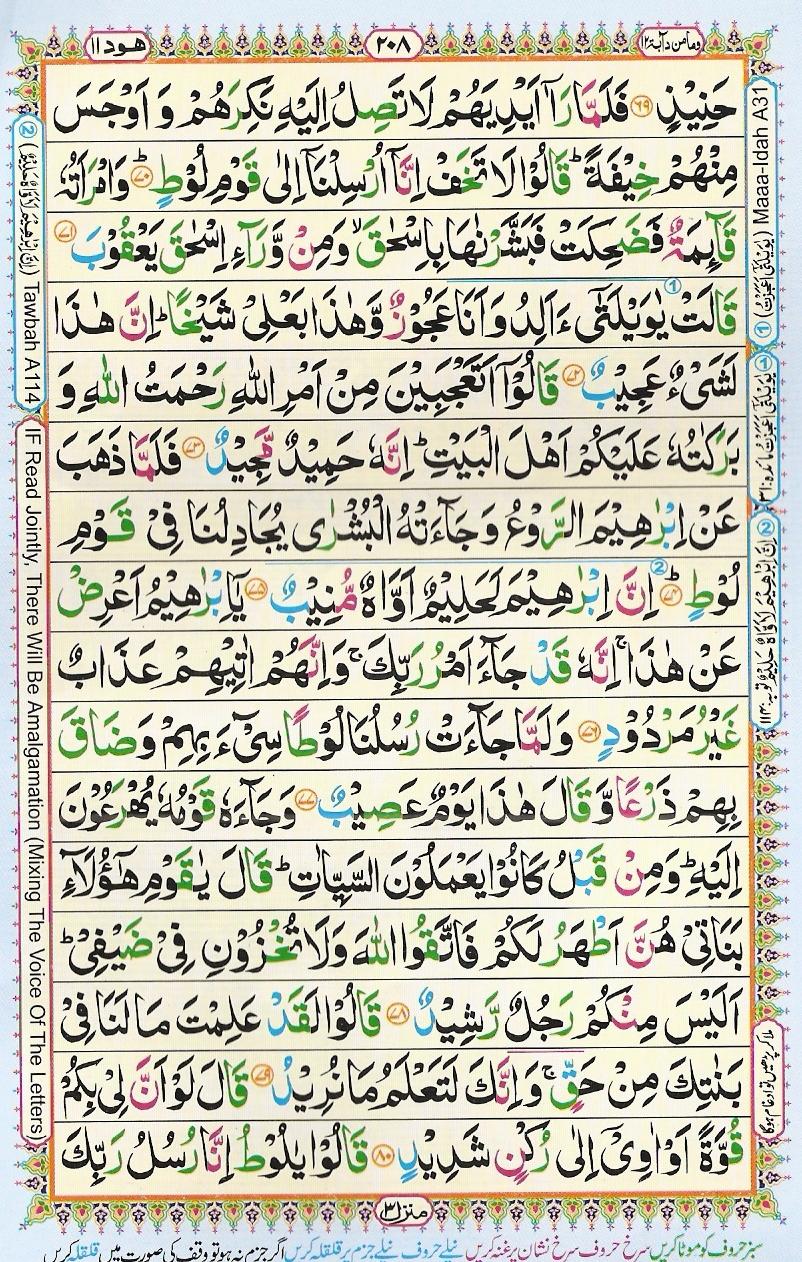 ھود ۱۱
۲۰۸
وما من دآبة ۱۲
حَنِيْذٍ ﴿۶۹﴾ فَلَمَّا رَاٰۤ اَيْدِيَهُمْ لَا تَصِلُ اِلَيْهِ نَكِرَهُمْ وَ اَوْجَسَ
مِنْهُمْ خِيْفَةً ؕ قَالُوْا لَا تَخَفْ اِنَّاۤ اُرْسِلْنَاۤ اِلٰى قَوْمِ لُوْطٍ ؕ﴿۷۰﴾ وَامْرَاَتُهٗ
قَآئِمَةٌ فَضَحِكَتْ فَبَشَّرْنٰهَا بِاِسْحٰقَ ۙ وَمِنْ وَّرَآءِ اِسْحٰقَ يَعْقُوْبَ ﴿۷۱﴾
قَالَتْ يٰوَيْلَتٰٓى ءَاَلِدُ وَاَنَا عَجُوْزٌ وَّهٰذَا بَعْلِىْ شَيْخًا ؕ اِنَّ هٰذَا
لَشَىْءٌ عَجِيْبٌ ﴿۷۲﴾ قَالُوْۤا اَتَعْجَبِيْنَ مِنْ اَمْرِ اللّٰهِ رَحْمَتُ اللّٰهِ وَ
بَرَكٰتُهٗ عَلَيْكُمْ اَهْلَ الْبَيْتِ ؕ اِنَّهٗ حَمِيْدٌ مَّجِيْدٌ ﴿۷۳﴾ فَلَمَّا ذَهَبَ
عَنْ اِبْرٰهِيْمَ الرَّوْعُ وَجَآءَتْهُ الْبُشْرٰى يُجَادِلُنَا فِىْ قَوْمِ
لُوْطٍ ؕ﴿۷۴﴾ اِنَّ اِبْرٰهِيْمَ لَحَلِيْمٌ اَوَّاهٌ مُّنِيْبٌ ﴿۷۵﴾ يٰۤاِبْرٰهِيْمُ اَعْرِضْ
عَنْ هٰذَا ۚ اِنَّهٗ قَدْ جَآءَ اَمْرُ رَبِّكَ ۚ وَاِنَّهُمْ اٰتِيْهِمْ عَذَابٌ
غَيْرُ مَرْدُوْدٍ ﴿۷۶﴾ وَلَمَّا جَآءَتْ رُسُلُنَا لُوْطًا سِىْٓءَ بِهِمْ وَضَاقَ
بِهِمْ ذَرْعًا وَّقَالَ هٰذَا يَوْمٌ عَصِيْبٌ ﴿۷۷﴾ وَجَآءَهٗ قَوْمُهٗ يُهْرَعُوْنَ
اِلَيْهِ ؕ وَمِنْ قَبْلُ كَانُوْا يَعْمَلُوْنَ السَّيِّاٰتِ ؕ قَالَ يٰقَوْمِ هٰٓؤُلَآءِ
بَنَاتِىْ هُنَّ اَطْهَرُ لَكُمْ فَاتَّقُوا اللّٰهَ وَلَا تُخْزُوْنِ فِىْ ضَيْفِىْ ؕ
اَلَيْسَ مِنْكُمْ رَجُلٌ رَّشِيْدٌ ﴿۷۸﴾ قَالُوْا لَقَدْ عَلِمْتَ مَا لَنَا فِىْ
بَنٰتِكَ مِنْ حَقٍّ ۚ وَاِنَّكَ لَتَعْلَمُ مَا نُرِيْدُ ﴿۷۹﴾ قَالَ لَوْ اَنَّ لِىْ بِكُمْ
قُوَّةً اَوْ اٰوِىْۤ اِلٰى رُكْنٍ شَدِيْدٍ ﴿۸۰﴾ قَالُوْا يٰلُوْطُ اِنَّا رُسُلُ رَبِّكَ
منزل ۳
① (يٰوَيْلَتٰٓى اَعَجَزْتُ) Maaa-Idah A31
② (اِنَّ اِبْرٰهِيْمَ لَاَوَّاهٌ حَلِيْمٌ) Tawbah A114
IF Read Jointly, There Will Be Amalgamation (Mixing The Voice Of The Letters)
ملا کر پڑھیں تو ادغام ہوگا
سبز حروف کو موٹا کریں سرخ حروف سرخ نشان پر غنہ کریں نیلے حروف نیلے جزم پر قلقلہ کریں اگر جزم نہ ہو تو وقف کی صورت میں قلقلہ کریں